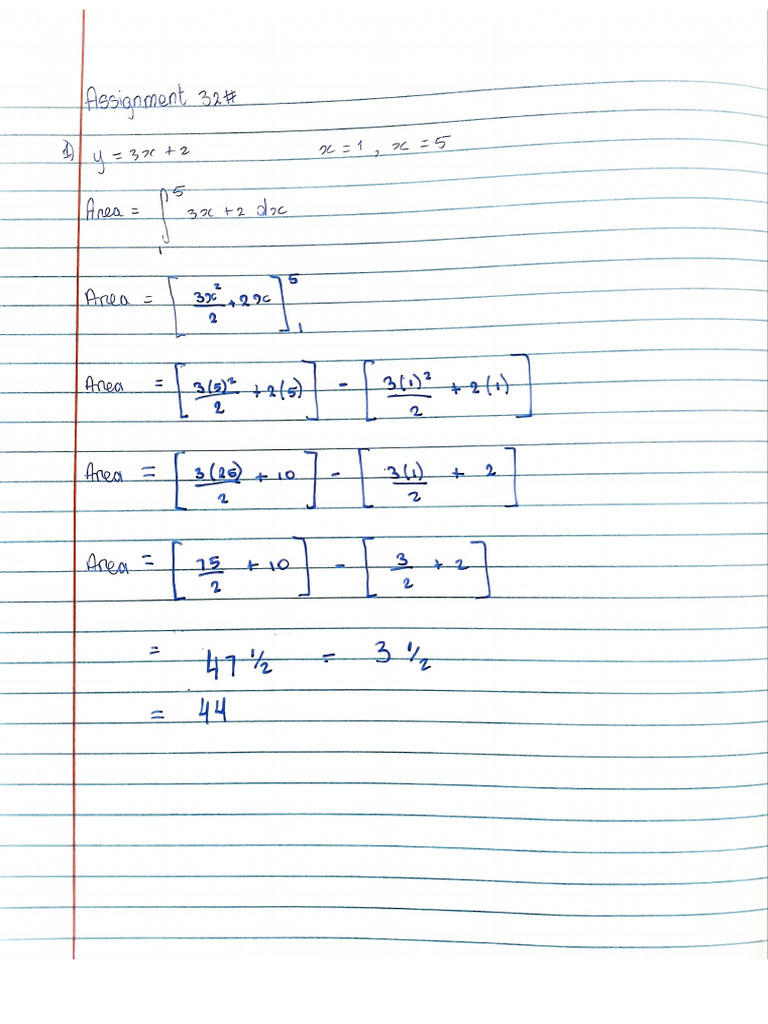 Assignment 32#
1) y = 3x + 2 x = 1, x = 5
Area = ∫₁⁵ 3x + 2 dx
Area = [3x²/2 + 2x]₁⁵
Area = [3(5)²/2 + 2(5)] - [3(1)²/2 + 2(1)]
Area = [3(25)/2 + 10] - [3(1)/2 + 2]
Area = [75/2 + 10] - [3/2 + 2]
= 47 1/2 - 3 1/2
= 44